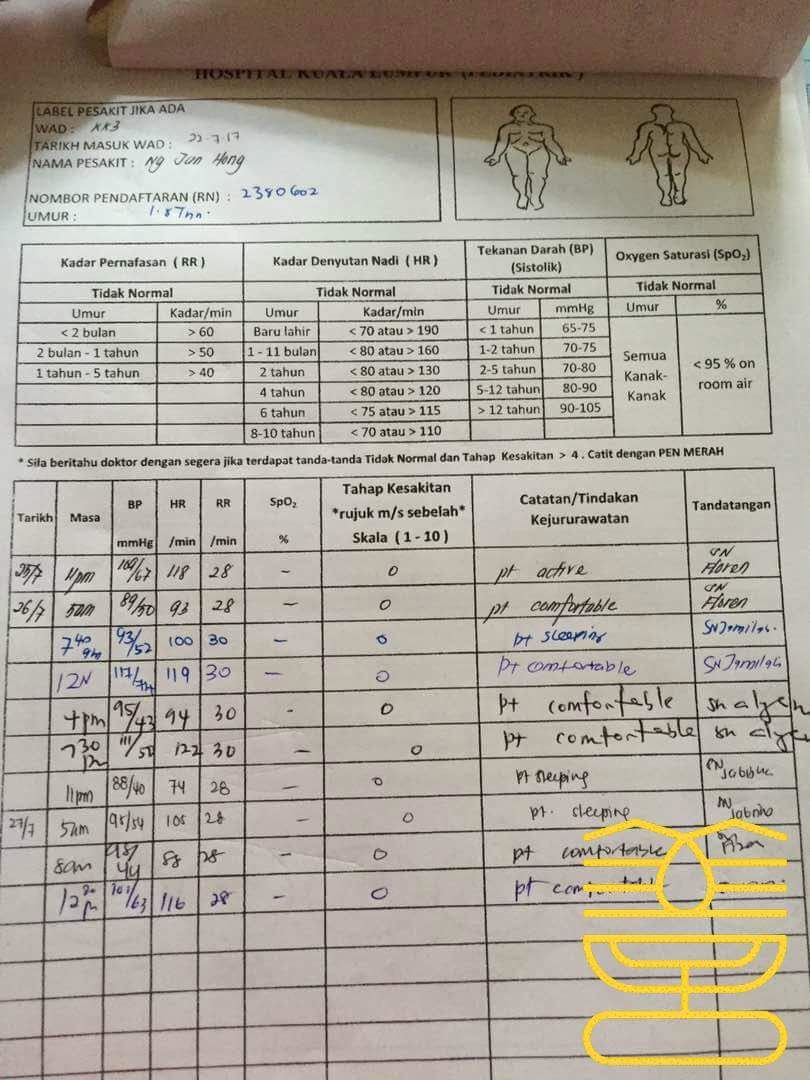 HOSPITAL KUALA LUMPUR (PEDIATRIK)
LABEL PESAKIT JIKA ADA
WAD : KK3
TARIKH MASUK WAD : 22-7-17
NAMA PESAKIT : Ng Jun Hong
NOMBOR PENDAFTARAN (RN) : 2380602
UMUR :
Kadar Pernafasan ( RR ) Kadar Denyutan Nadi ( HR ) Tekanan Darah (BP) (Sistolik) Oxygen Saturasi (SpO₂)
Tidak Normal Tidak Normal Tidak Normal Tidak Normal
Umur Kadar/min Umur Kadar/min Umur mmHg Umur %
< 2 bulan > 60 Baru lahir < 70 atau > 190 < 1 tahun 65-75 Semua Kanak-Kanak < 95 % on room air
2 bulan - 1 tahun > 50 1 - 11 bulan < 80 atau > 160 1-2 tahun 70-75
1 tahun - 5 tahun > 40 2 tahun < 80 atau > 130 2-5 tahun 70-80
4 tahun < 80 atau > 120 5-12 tahun 80-90
6 tahun < 75 atau > 115 > 12 tahun 90-105
8-10 tahun < 70 atau > 110
* Sila beritahu doktor dengan segera jika terdapat tanda-tanda Tidak Normal dan Tahap Kesakitan > 4 . Catit dengan PEN MERAH
Tarikh Masa BP mmHg HR /min RR /min SpO₂ % Tahap Kesakitan *rujuk m/s sebelah* Skala ( 1 - 10 ) Catatan/Tindakan Kejururawatan Tandatangan
25/7 11pm 100/67 118 28 - 0 pt active SN Floren
26/7 5am 89/50 93 28 - 0 pt comfortable SN Floren
7 40 93/52 100 30 - 0 pt sleeping SN
12N 117/74 119 30 - 0 pt comfortable SN
4pm 95/43 94 30 - 0 pt comfortable sn
730 111/50 122 30 - 0 pt comfortable sn
11pm 88/40 74 28 - 0 pt sleeping SN
27/7 5am 95/54 105 28 - 0 pt. sleeping SN
8am 98/44 88 28 - 0 pt comfortable
12 /63 116 28 - 0 pt comfortable